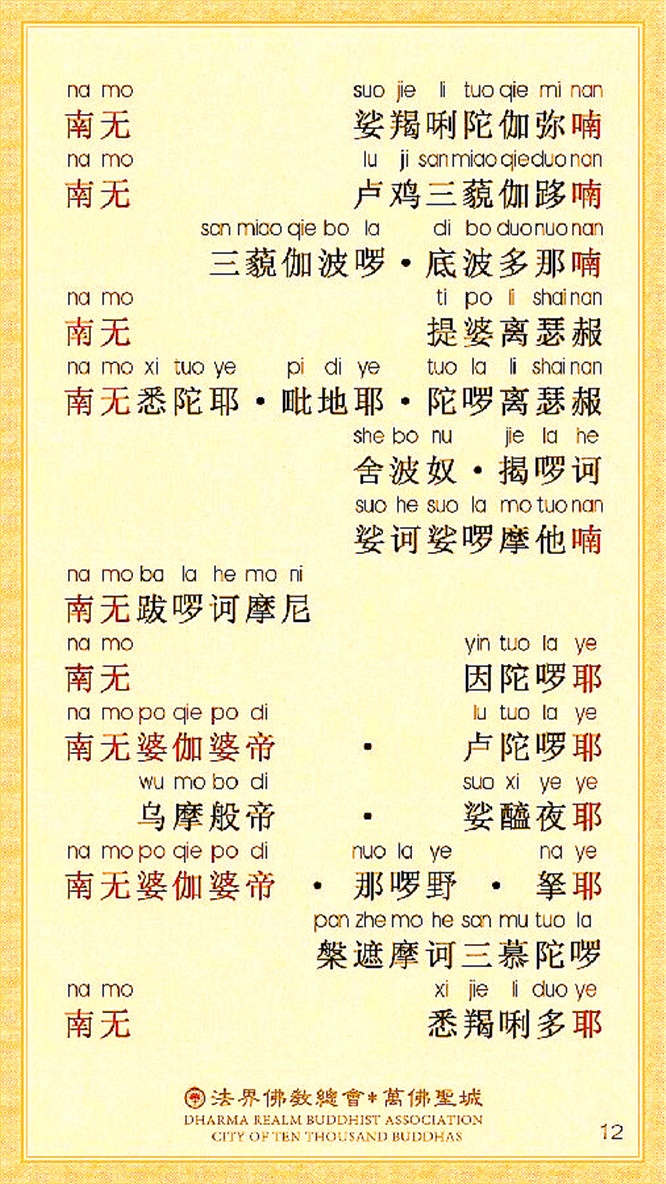 na mo suo jie li tuo qie mi nan
南无 娑羯唎陀伽弥喃
na mo lu ji san miao qie duo nan
南无 卢鸡三藐伽哆喃
san miao qie bo la di bo duo nuo nan
三藐伽波啰·底波多那喃
na mo ti po li shai nan
南无 提婆离瑟赧
na mo xi tuo ye pi di ye tuo la li shai nan
南无悉陀耶·毗地耶·陀啰离瑟赧
she bo nu jie la he
舍波奴·揭啰诃
suo he suo la mo tuo nan
娑诃娑啰摩他喃
na mo ba la he mo ni
南无跋啰诃摩尼
na mo yin tuo la ye
南无 因陀啰耶
na mo po qie po di lu tuo la ye
南无婆伽婆帝·卢陀啰耶
wu mo bo di suo xi ye ye
乌摩般帝·娑醯夜耶
na mo po qie po di nuo la ye na ye
南无婆伽婆帝·那啰野·拏耶
pan zhe mo he san mu tuo la
槃遮摩诃三慕陀啰
na mo xi jie li duo ye
南无 悉羯唎多耶
法界佛教總會*萬佛聖城
DHARMA REALM BUDDHIST ASSOCIATION
CITY OF TEN THOUSAND BUDDHAS
12